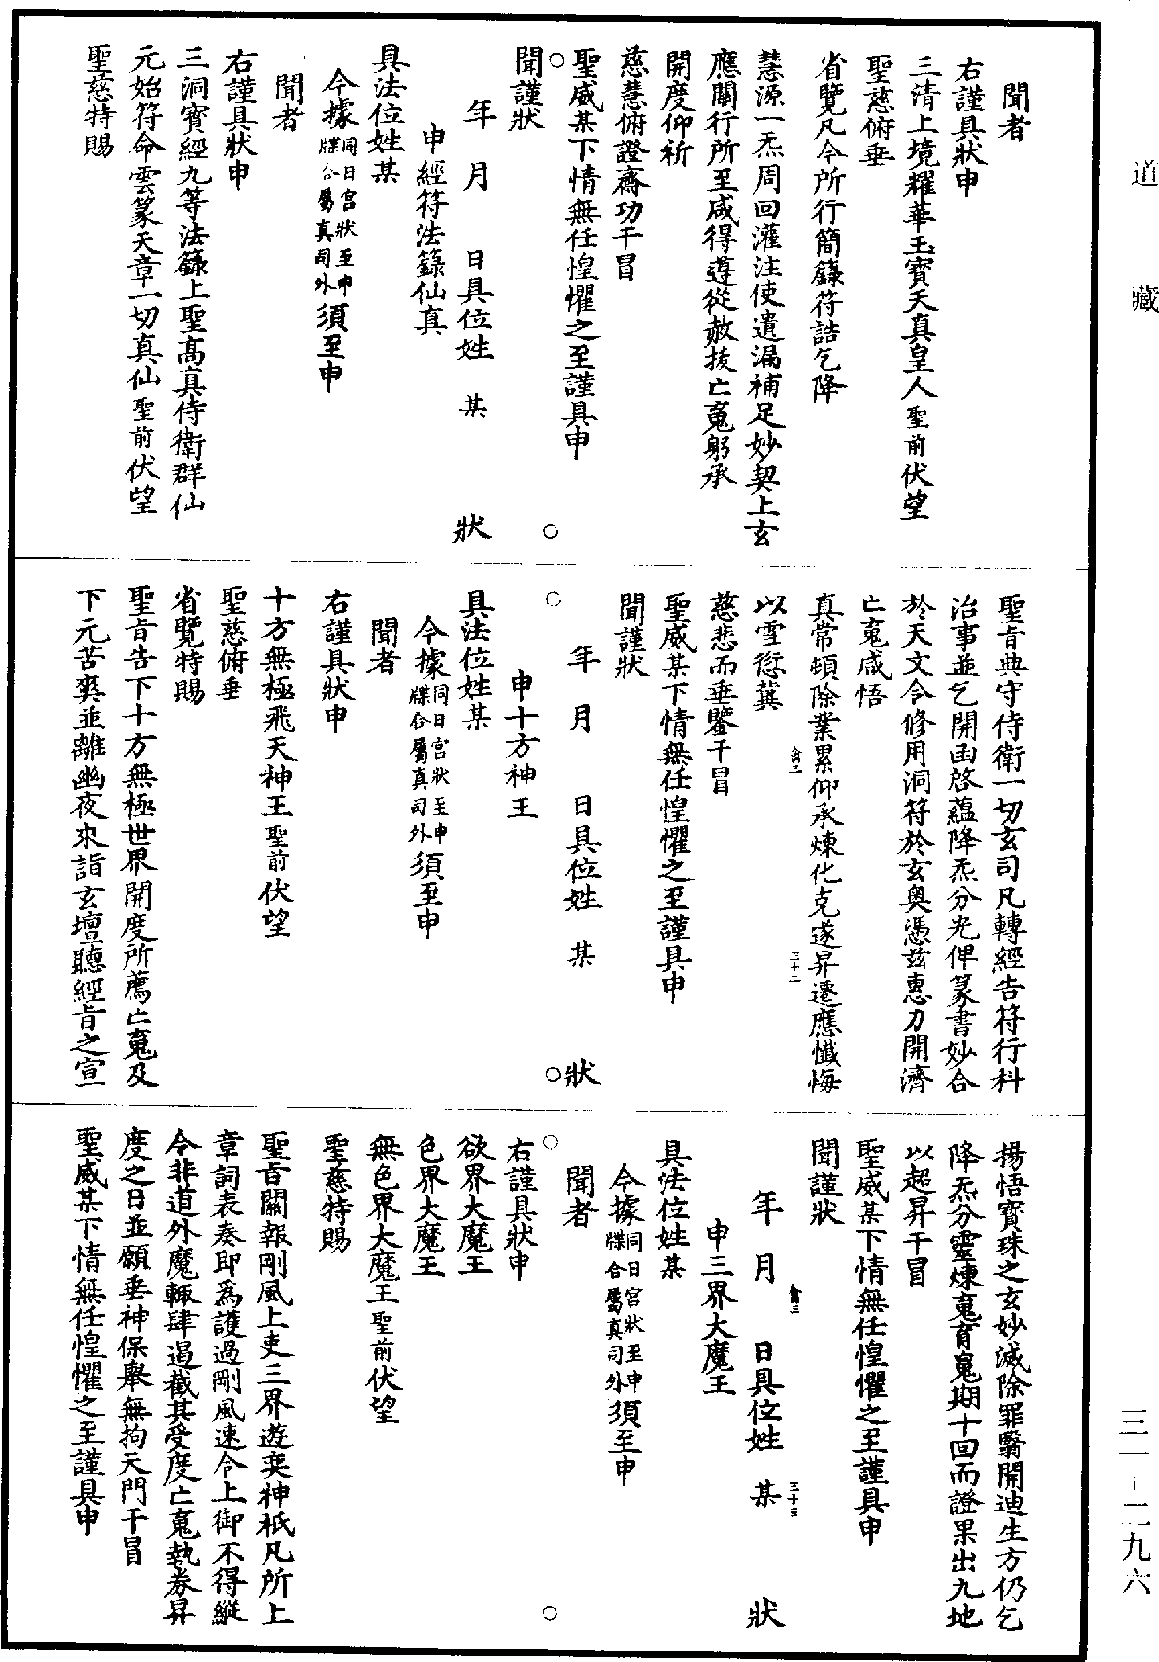 道藏
聞者
右謹具狀申
三清上境耀華玉寶天真皇人聖前伏望
聖慈俯垂
省覽凡今所行簡籙符誥乞降
慧源一炁周回灌注使遺漏補足妙契上玄
應關行所至咸得遵從赦拔亡䰟躬承
開度仰祈
慈慧俯證齋功干冒
聖威某下情無任惶懼之至謹具申
聞謹狀
年月日具位姓某狀
申經符法籙仙真
具法位姓某
今據同日宮狀至申牒合屬真司外須至申
聞者
右謹具狀申
三洞寶經九等法籙上聖高真侍衛群仙
元始符命雲篆天章一切真仙聖前伏望
聖慈特賜
聖旨典守侍衛一切玄司凡轉經告符行科
治事並乞開函啓蘊降炁分光俾篆書妙合
於天文令修用洞符於玄奧憑茲惠力開濟
亡䰟咸悟
真常頓除業累仰承煉化克遂昇遷應懺悔
以雪愆冀
慈悲而垂鑒干冒
聖威某下情無任惶懼之至謹具申
聞謹狀
年月日具位姓某狀
申十方神王
具法位姓某
今據同日宮狀至申牒合屬真司外須至申
聞者
右謹具狀申
十方無極飛天神王聖前伏望
聖慈俯垂
省覽特賜
聖旨告下十方無極世界開度所薦亡䰟及
下元苦爽並離幽夜來詣玄壇聽經旨之宣
揚悟寶珠之玄妙滅除罪翳開廸生方仍乞
降炁分靈煉䰟育䰟期十回而證果出九地
以超昇干冒
聖威某下情無任惶懼之至謹具申
聞謹狀
年月日具位姓某狀
申三界大魔王
具法位姓某
今據同日宮狀至申牒合屬真司外須至申
聞者
右謹具狀申
欲界大魔王
色界大魔王
無色界大魔王聖前伏望
聖慈特賜
聖旨關報剛風上吏三界遊奕神祇凡所上
章詞表奏即為護過剛風速令上御不得縱
令非道外魔輙肆遏截其受度亡䰟執券昇
度之日並願垂神保舉無拘天門干冒
聖威某下情無任惶懼之至謹具申
三一-二九六